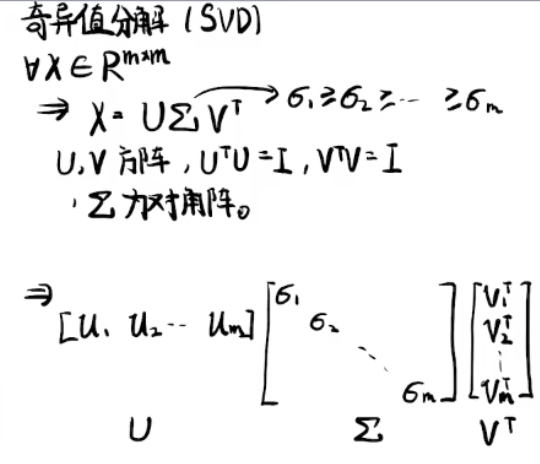 奇异值分解 (SVD)
∀X ∈ R^{m×m}
⇒ X = UΣV^T → σ₁ ≥ σ₂ ≥ ⋯ ≥ σₘ
U, V 方阵, U^TU = I, V^TV = I
, Σ 为对角阵。
⇒ [u₁ u₂ ⋯ uₘ] [σ₁ σ₂ ⋱ σₘ] [V₁^T V₂^T ⋮ Vₘ^T]
U Σ V^T